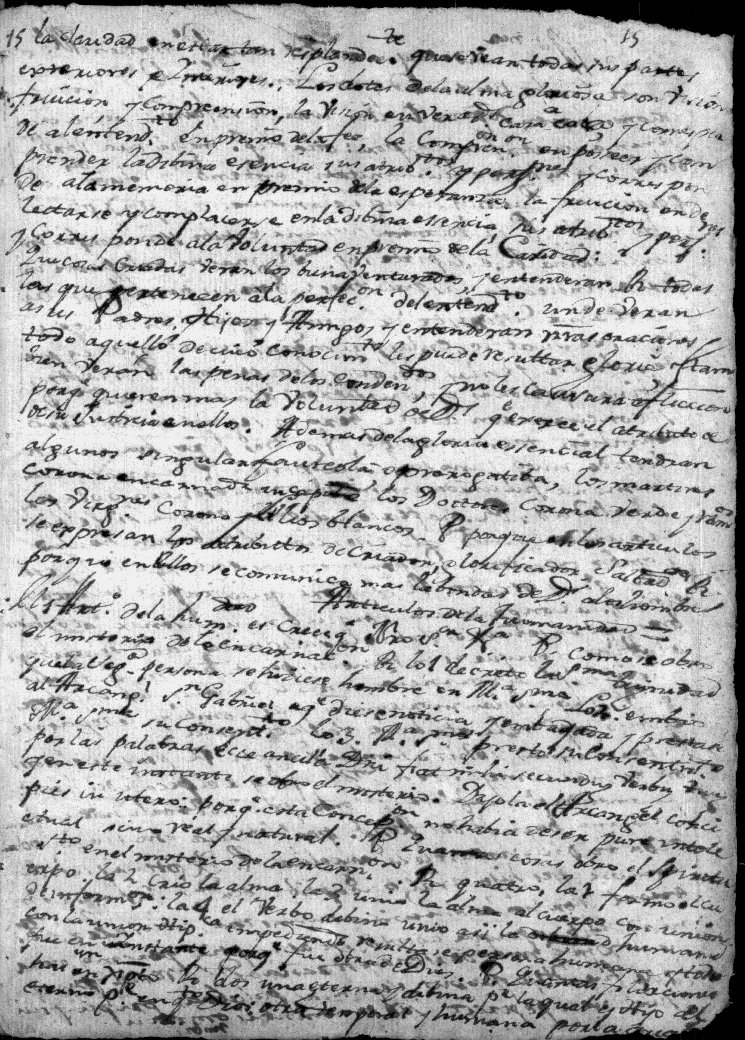 15 la claridad en estar tan resplande.te que se vean todas sus partes 15
exteriores e Interiores. Los dotes de la alma gloriosa son Vision
fruicion y Comprension, la Vision en ver a Ds cara a cara y Corresponde
al entend.to en premio de la fee, la Compren.on en poseer y Com
prender la divina esencia sus atrib.tos y pers.nas y Corres pon
de a la memoria en premio de la esperanza, la fruicion en de
lectarse y Complacerse en la divina esencia, sus atrib.tos y pers.
y Corres ponde a la Voluntad en premio de la Caridad:
Que cosas Criadas veran los bienaventurados, y entenderan R. todas
las que pertenecen a la perfec.on del entend.to unde veran
a sus Padres, Hijos y Amigos y entenderan nras oraciones
todo aquello de cuio Conocim.to les puede resultar gloria. Tam
bien veran las penas de los Conden.dos y no les causara afliccion
porq quieren mas la Voluntad de Ds q exerce el atributo de
su Justicia en ellos. Ademas de la gloria essencial tendran
algunos singular laureola o prerrogativa, los martires
Corona encarnada los Doctores Corona Verde y
las Virg.nes Corona de lilios blancos. P. porque en los articulos
se expresan los atributos de Criador, Glorificador, Salvador R.
porque en ellos se comunica mas la bondad de Ds a los hombres
Articulos de la Humanidad
El 1 Art.o de la hum. es Creer q P. Como se obro
el misterio de la encarnac.on R. lo 1 decreto la SSma trinidad
que la seg.da persona se hiciese hombre en M.a SSma. Lo 2 embio
al Arcang.l Sn Gabriel a q diese noticia y embajada
M.a SSma su Consent.to lo 3 M.a presto su Consentim.to
por las palabras ecce ancilla Dni fiat mihi secundum Verbum tuum
y en este instante se obro el misterio. Dijola el Arcangel conci
pies in utero: porq esta Concep.on no habia de ser pure intele
ctual sino real y natural. P. Quantas cosas obro el Spiritu
Sto en el misterio de la encarn.on R. quatro, la 1 formo el cu
erpo. la 2 crio la alma la 3 unio la alma al cuerpo con union
de informon: la 4 el Verbo divino unio asi la humanidad
con la union Hip.ca impediendo persona humana y todo
fue en un instante porq fue obra de Dios. P. Quantas filiaciones
hai en Xpto R. dos una eterna y divina p.r la qual es Hijo del
eterno P.e en q.to Dios, otra temporal y humana por la qual